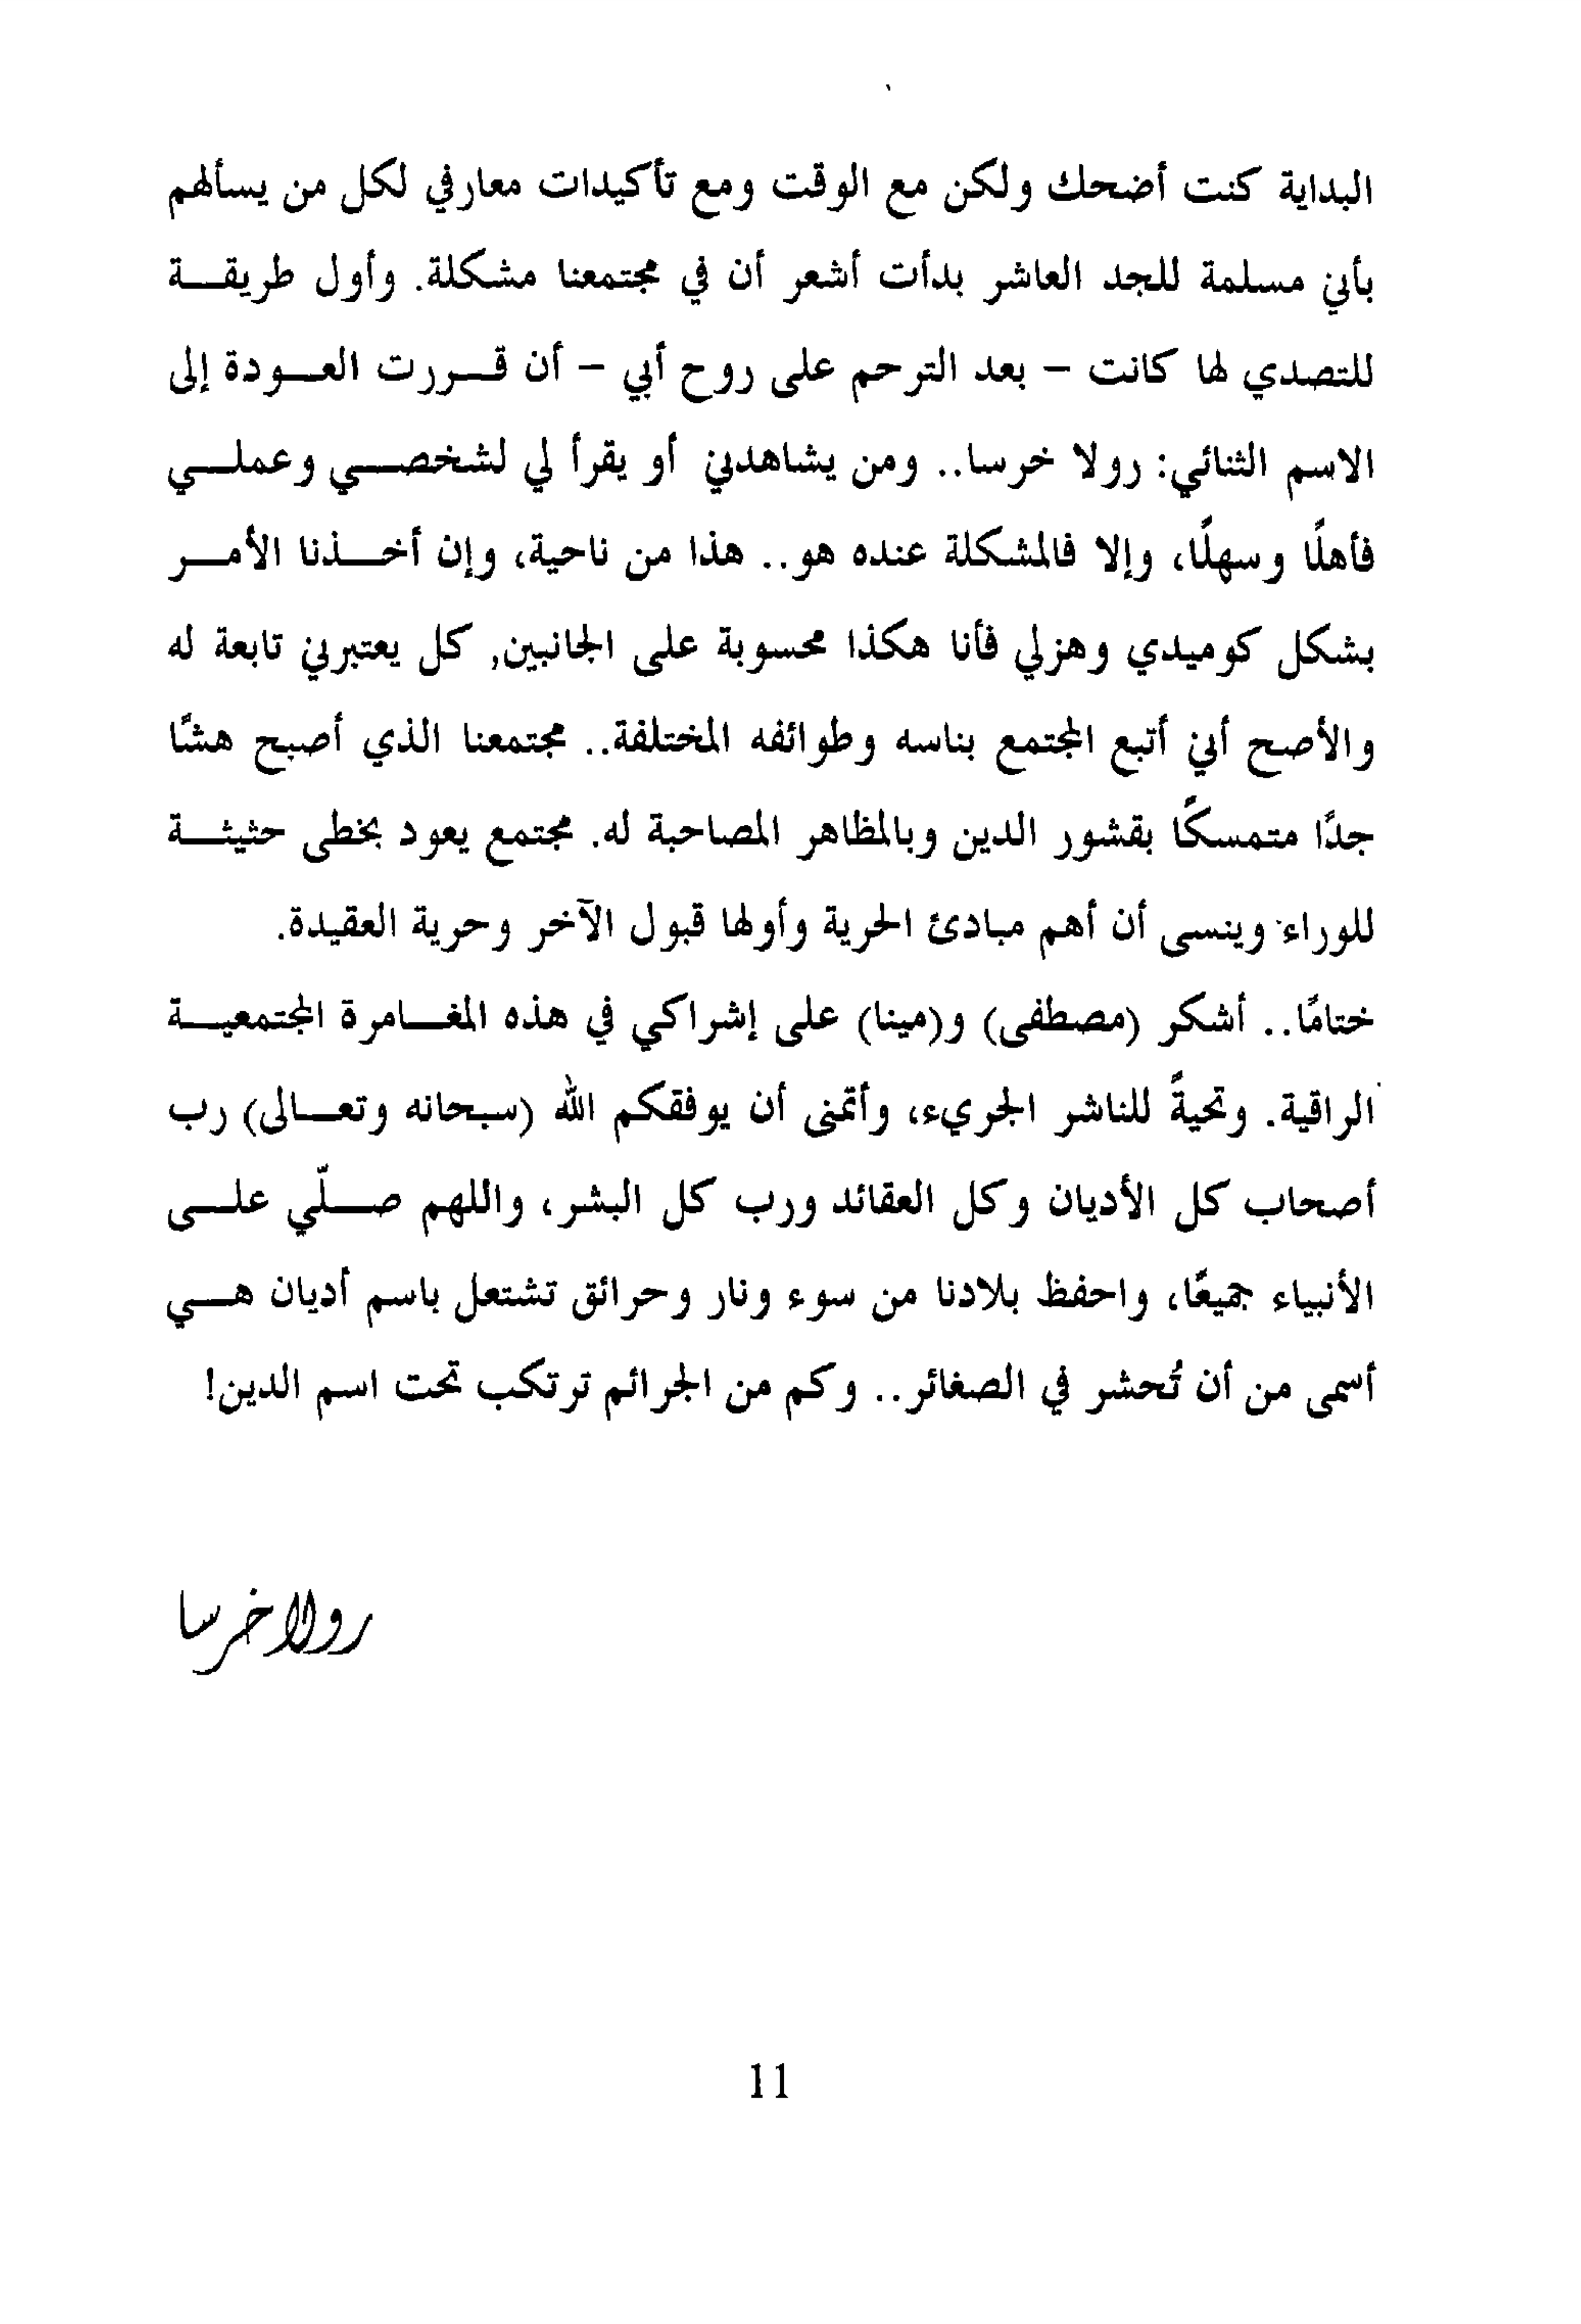 البداية كنت أضحك ولكن مع الوقت ومع تأكيدات معارفي لكل من يسألهم
بأني مسلمة للجد العاشر بدأت أشعر أن في مجتمعنا مشكلة. وأول طريقة
للتصدي لها كانت – بعد الترحم على روح أبي – أن قررت العودة إلى
الاسم الثنائي: رولا خرسا.. ومن يشاهدني أو يقرأ لي لشخصي وعملي
فأهلًا وسهلًا، وإلا فالمشكلة عنده هو.. هذا من ناحية، وإن أخذنا الأمر
بشكل كوميدي وهزلي فأنا هكذا محسوبة على الجانبين, كل يعتبرني تابعة له
والأصح أني أتبع المجتمع بناسه وطوائفه المختلفة.. مجتمعنا الذي أصبح هشًا
جدًا متمسكًا بقشور الدين وبالمظاهر المصاحبة له. مجتمع يعود بخطى حثيثة
للوراء وينسى أن أهم مبادئ الحرية وأولها قبول الآخر وحرية العقيدة.
ختامًا.. أشكر (مصطفى) و(مينا) على إشراكي في هذه المغامرة المجتمعية
الراقية. وتحيةً للناشر الجريء، وأتمنى أن يوفقكم الله (سبحانه وتعالى) رب
أصحاب كل الأديان وكل العقائد ورب كل البشر، واللهم صلّي على
الأنبياء جميعًا، واحفظ بلادنا من سوء ونار وحرائق تشتعل باسم أديان هي
أسمى من أن تُحشر في الصغائر.. وكم من الجرائم ترتكب تحت اسم الدين!
رولا خرسا
11